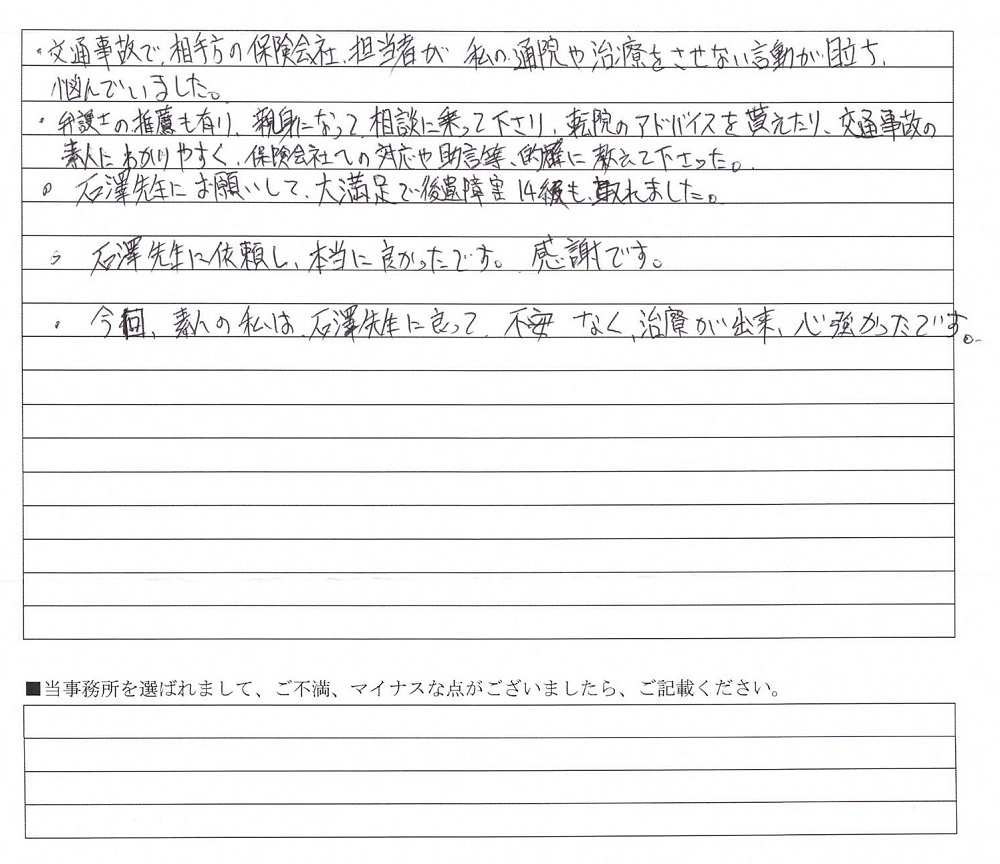 ・交通事故で、相手方の保険会社、担当者が 私の通院や治療をさせない言動が目立ち、
悩んでいました。
・弁護士の推薦も有り、親身になって、相談に乗って下さり、転院のアドバイスを貰えたり、交通事故の
素人にわかりやすく、保険会社への対応や助言等、的確に教えて下さった。
。石澤先生にお願いして、大満足で後遺障害14級も取れました。
。石澤先生に依頼し、本当に良かったです。 感謝です。
・今回、素人の私は、石澤先生に良って、不安 なく、治療が出来、心強かったです。
■当事務所を選ばれまして、ご不満、マイナスな点がございましたら、ご記載ください。